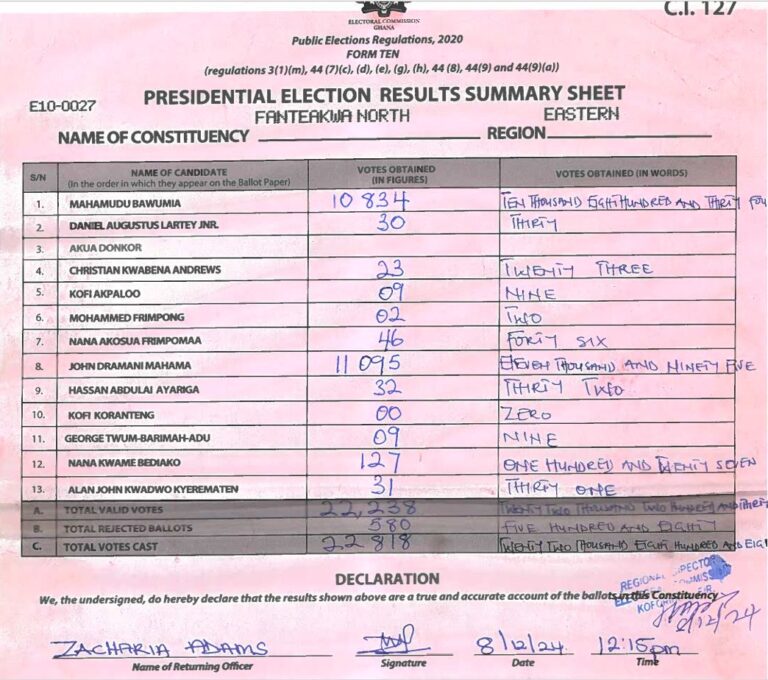 C.I. 127
ELECTORAL COMMISSION
GHANA
Public Elections Regulations, 2020
FORM TEN
(regulations 3(1)(m), 44 (7)(c), (d), (e), (g), (h), 44 (8), 44(9) and 44(9)(a))
E10-0027
PRESIDENTIAL ELECTION RESULTS SUMMARY SHEET
NAME OF CONSTITUENCY FANTEAKWA NORTH REGION EASTERN
S/N NAME OF CANDIDATE (In the order in which they appear on the Ballot Paper) VOTES OBTAINED (IN FIGURES) VOTES OBTAINED (IN WORDS)
1. MAHAMUDU BAWUMIA 10 834 TEN THOUSAND EIGHT HUNDRED AND THIRTY FOU
2. DANIEL AUGUSTUS LARTEY JNR. 30 THIRTY
3. AKUA DONKOR
4. CHRISTIAN KWABENA ANDREWS 23 TWENTY THREE
5. KOFI AKPALOO 09 NINE
6. MOHAMMED FRIMPONG 02 TWO
7. NANA AKOSUA FRIMPOMAA 46 FORTY SIX
8. JOHN DRAMANI MAHAMA 11 095 ELEVEN THOUSAND AND NINETY FIVE
9. HASSAN ABDULAI AYARIGA 32 THIRTY TWO
10. KOFI KORANTENG 00 ZERO
11. GEORGE TWUM-BARIMAH-ADU 09 NINE
12. NANA KWAME BEDIAKO 127 ONE HUNDRED AND TWENTY SEVEN
13. ALAN JOHN KWADWO KYEREMATEN 31 THIRTY ONE
A. TOTAL VALID VOTES 22,238 TWENTY TWO THOUSAND TWO HUNDRED AND THIRTY
B. TOTAL REJECTED BALLOTS 580 FIVE HUNDRED AND EIGHTY
C. TOTAL VOTES CAST 22 818 TWENTY TWO THOUSAND EIGHT HUNDRED AND EIG
DECLARATION
We, the undersigned, do hereby declare that the results shown above are a true and accurate account of the ballots in this Constituency
REGIONAL
ZACHARIA ADAMS 8/12/24 12:15pm
Name of Returning Officer Signature Date Time